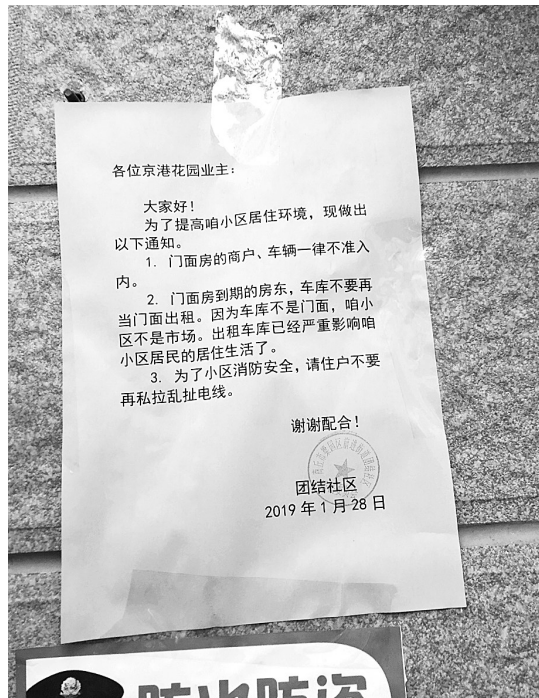 各位京港花园业主：
大家好！
为了提高咱小区居住环境，现做出
以下通知。
1. 门面房的商户、车辆一律不准入
内。
2. 门面房到期的房东，车库不要再
当门面出租。因为车库不是门面，咱小
区不是市场。出租车库已经严重影响咱
小区居民的居住生活了。
3. 为了小区消防安全，请住户不要
再私拉乱扯电线。
谢谢配合！
团结社区
2019年1月28日
防火防盗